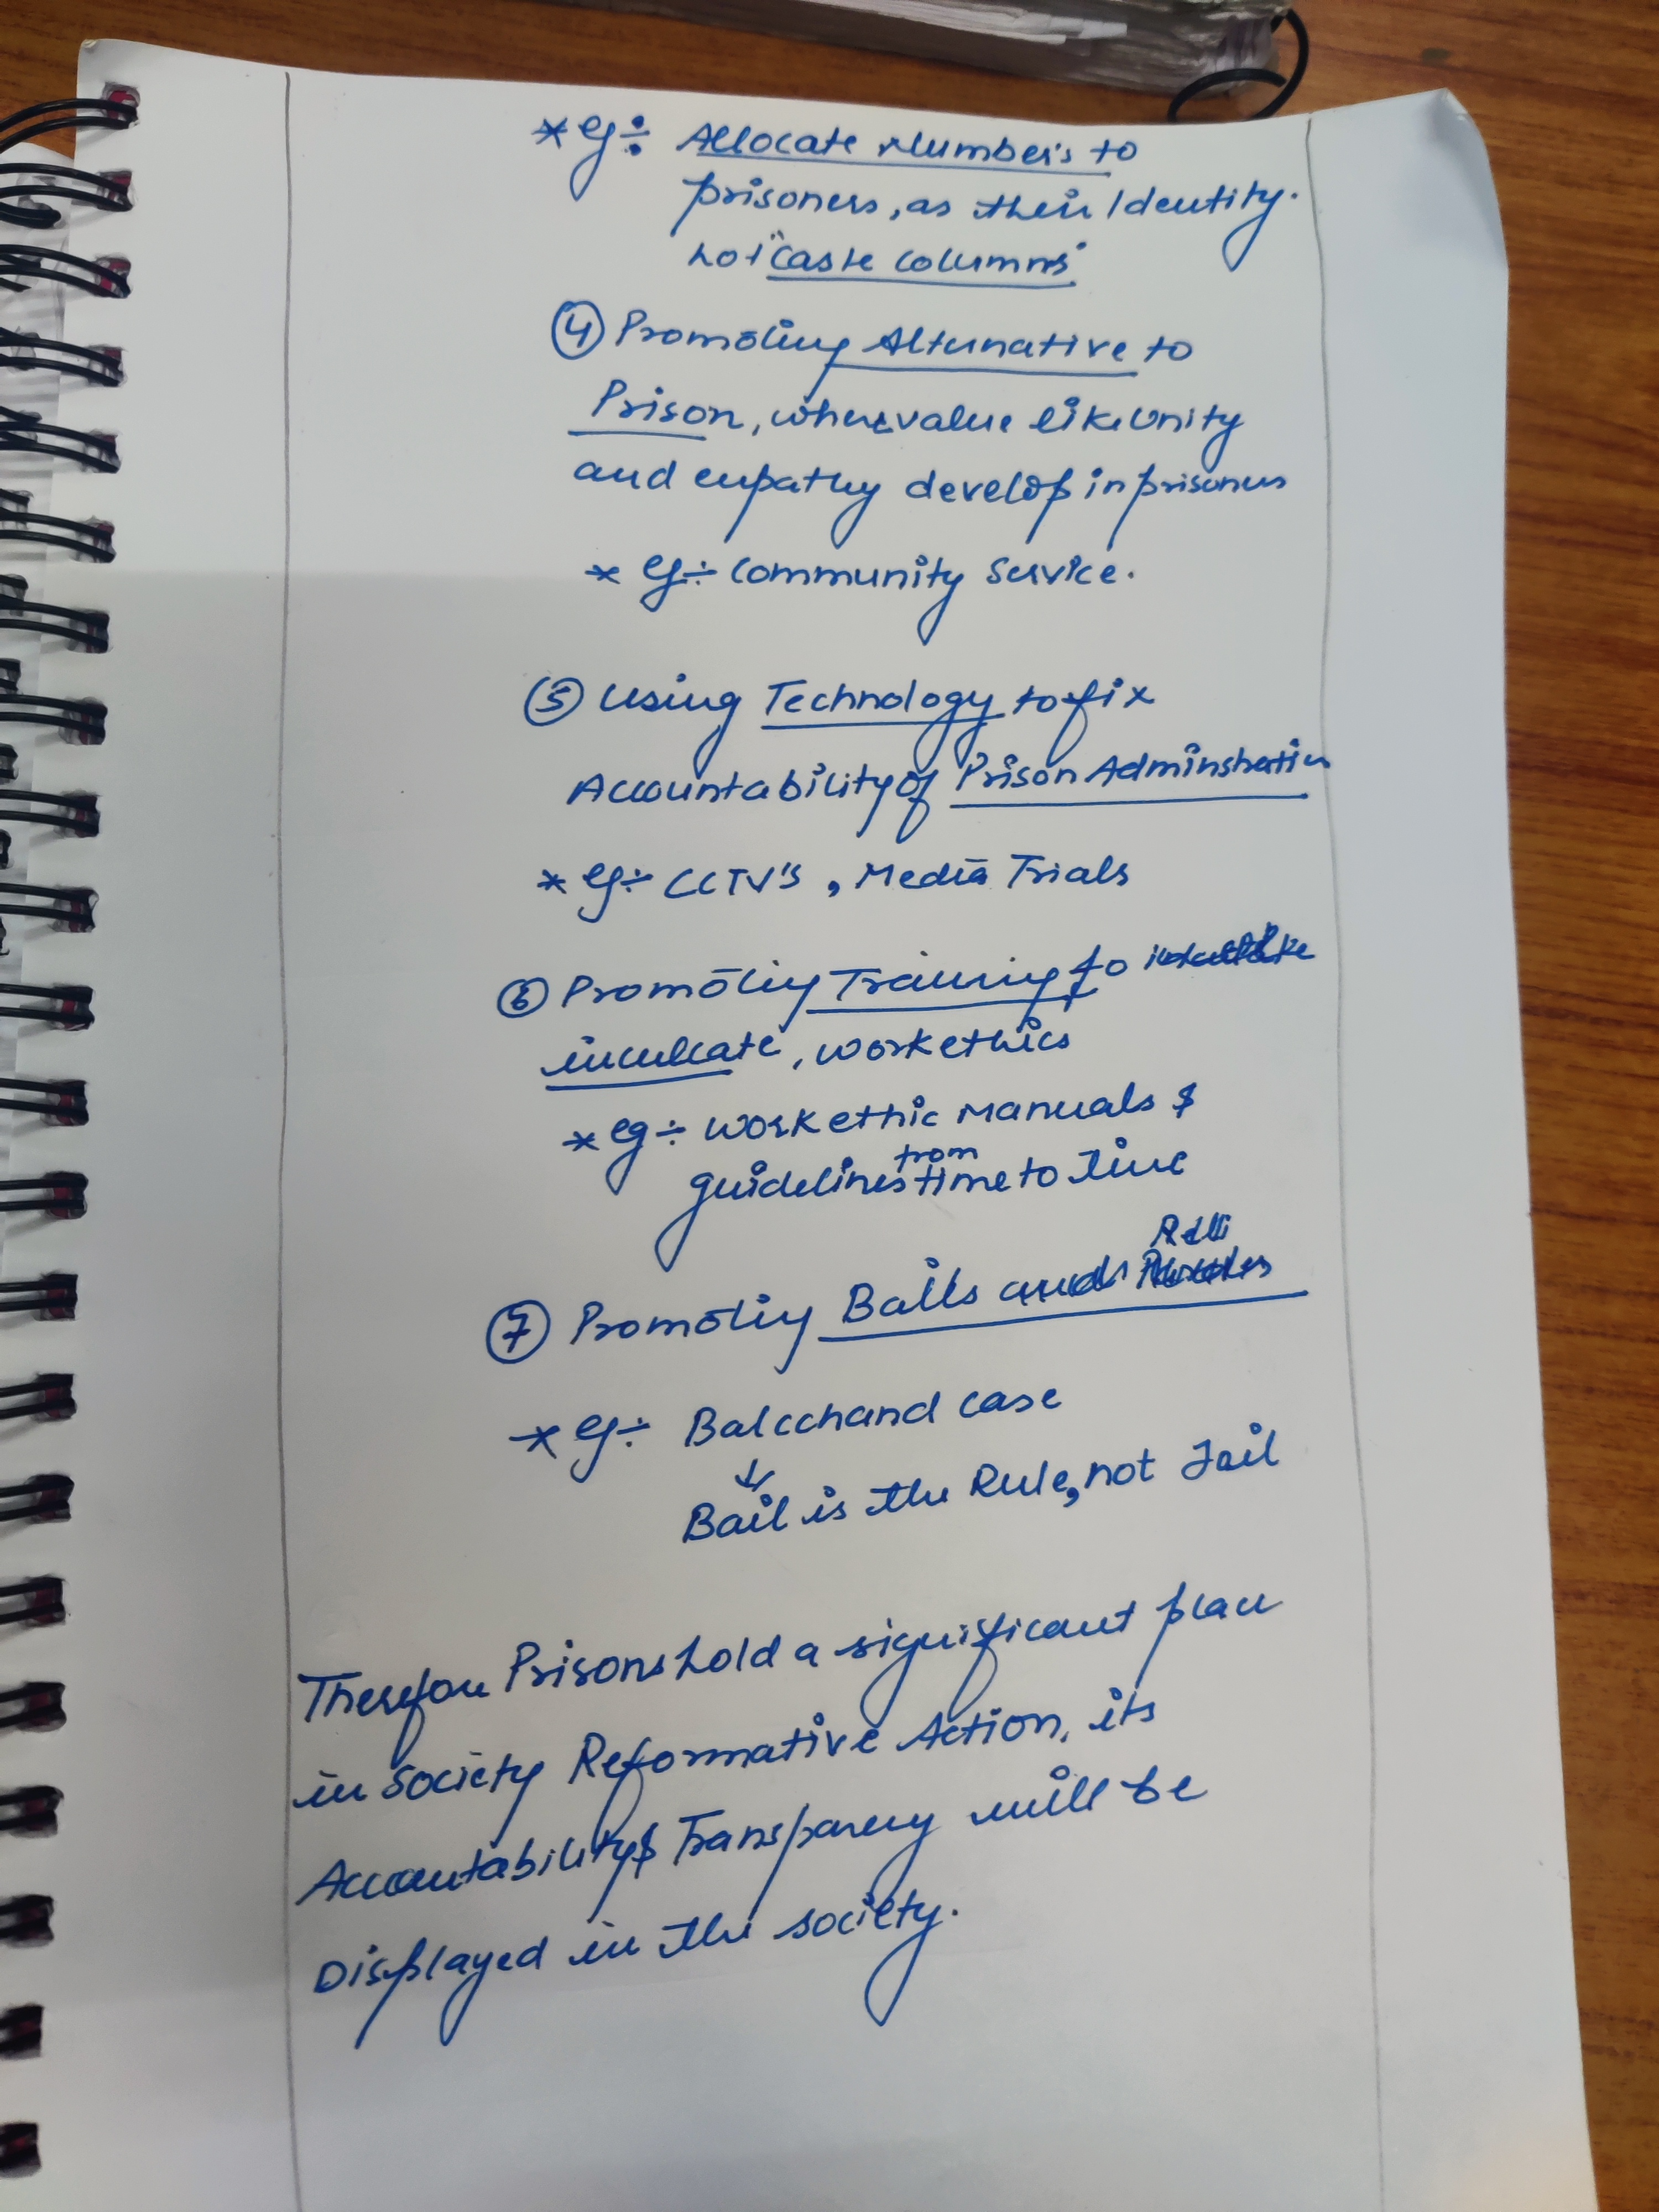 * eg ÷ Allocate Numbers to
prisoners, as their Identity.
not "caste columns"
④ Promoting Alternative to
Prison, where value like Unity
and empathy develop in prisoners
* eg ÷ Community Service.
⑤ Using Technology to fix
Accountability of Prison Adminstration
* eg ÷ CCTV's, Media Trials
⑥ Promoting Training to
inculcate, work ethics
* eg ÷ work ethic Manuals &
guidelines from time to time
⑦ Promoting Bails and
* eg ÷ Balcchand case
↓
Bail is the Rule, not Jail
Therefore Prisons hold a significant place
in Society Reformative Action, its
Accountability & Transparency will be
Displayed in the society.